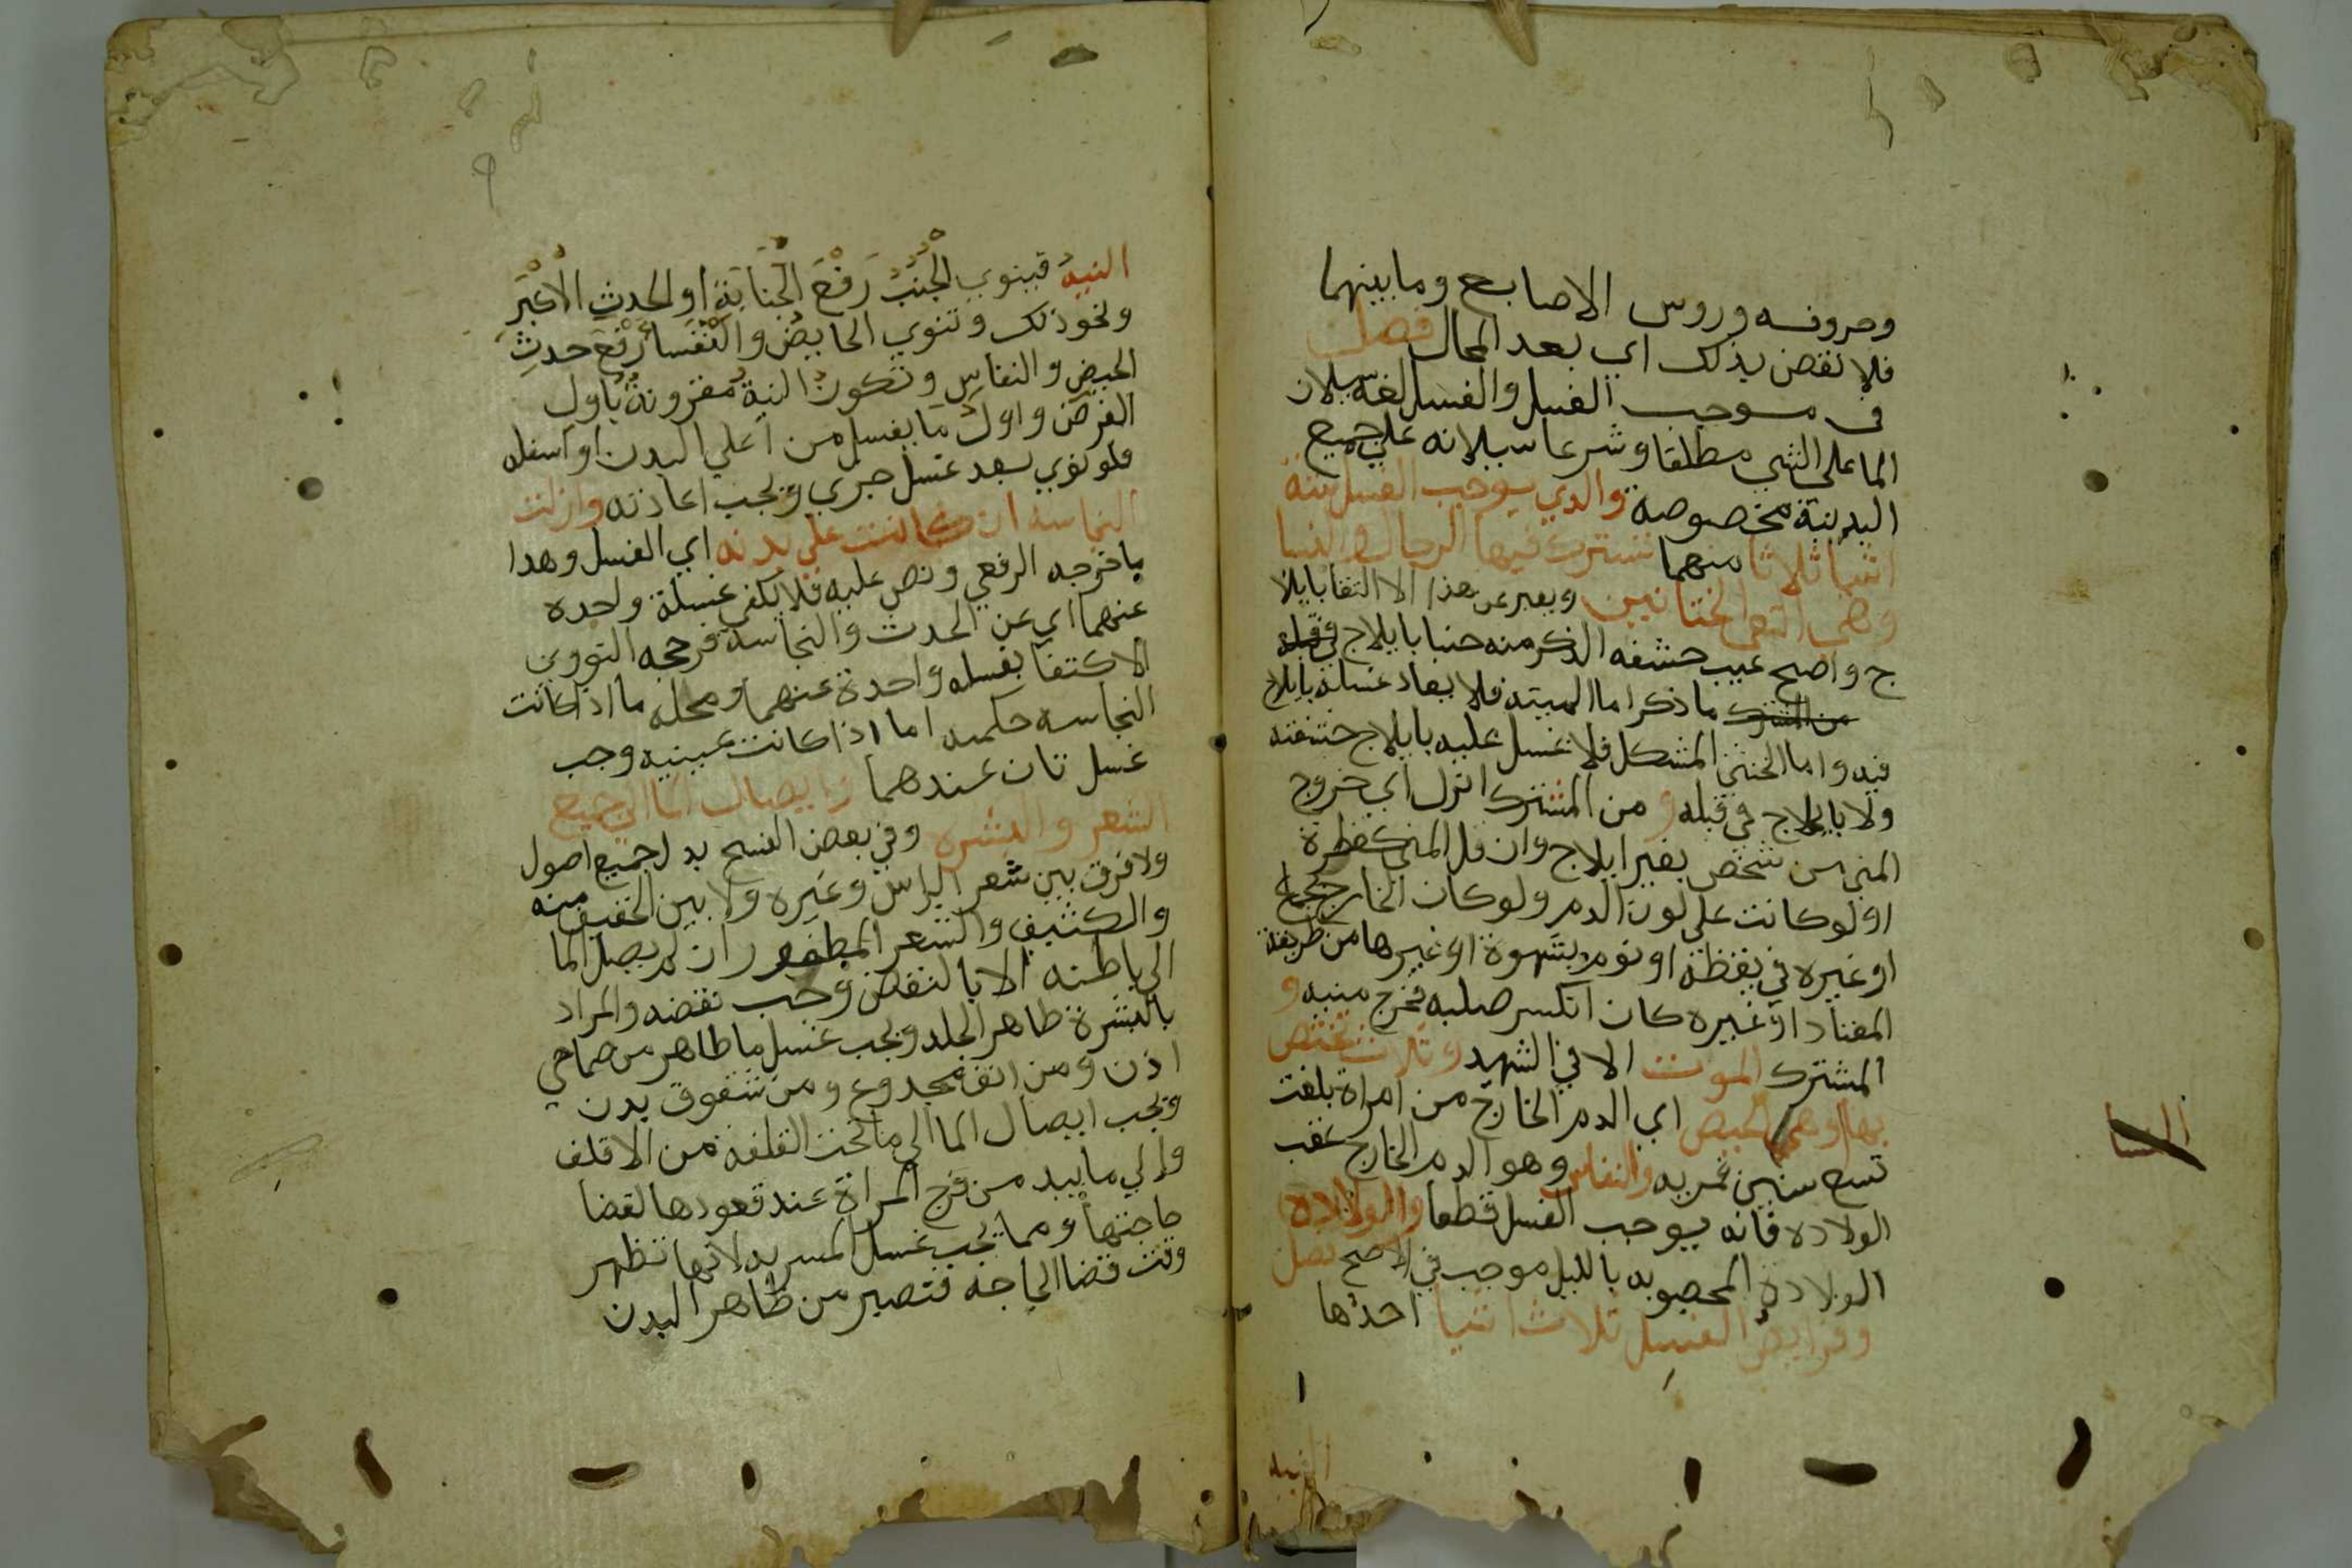 وحروفه وروس الاصابع وما بينهما
فلا نقض بذلك اي بعد المحال فصل
في موجب الغسل والغسل لغة سيلان
الما على الشي مطلقا وشرعا سيلانه على جميع
البدن بنية مخصوصة والذي يوجب الغسل ستة
اشيا ثلاثا منهما تشترك فيها الرجال والنسا
وهي التقى الختانين ويعبر عن هذا الالتقا بايلا
ج واضح غيب حشفه الذكر منه جنبا بايلاج في قبله
من المشترك ما ذكر اما الميته فلا يعاد غسله بايلاج
فيه واما الخنثى المشكل فلا غسل عليه بايلاج حشفته
ولا بايلاج في قبله و من المشترك انزل اي خروج
المني من شخص بغير ايلاج وان قل المني كقطرة
او لو كانت على لون الدم ولو كان الخارج بجماع
او غيره في يقظة او نوم بشهوة او غيرها من طريقة
المعتاد او غيره كان انكسر صلبه فخرج منيه و
المشترك الموت الا في الشهيد و ثلاث تختص
بها وهي الحيض اي الدم الخارج من امراة بلغت
تسع سنين قمريه والنفاس وهو الدم الخارج عقب
الولاده فانه يوجب الغسل قطعا والولاده
الولادة المصحوبه بالبلل موجب في الاصح فصل
وفرايض الغسل ثلاث اشيا احدها
النيه
النسا
النيةُ فينوي الْجُنُبُ رَفْعَ الْجَنَابَةِ او الحدثِ الْأكْبَرَ
ونحو ذلك وتنوي الحايض والنُّفَسا رَفْعَ حدثِ
الحيض والنفاس وتكون النية مقرونة باول
الفرض واول ما يغسل من اعلي البدن او اسفله
فلو نوي بعد غسل جزي وجب اعادته وازلت
النجاسه ان كانت علي بدنه اي الغسل وهدا
ما خرجه الرفعي ونص عليه فلا يكفي غسلة واحده
عنهما اي عن الحدث والنجاسة فرجحه النووي
الاكتفا بغسله واحدة عنهما ومحله ما اذا كانت
النجاسه حكميه اما اذا كانت عينيه وجب
غسل تان عندهما وايصال الما الي جميع
الشعر والبشره وفي بعض النسخ بدل جميع اصول
ولا فرق بين شعر الراس وغيره ولا بين الخفيف منه
والكثيف والشعر المظفور ان لم يصل الما
الي باطنه الا بالنقض وجب نقضه والمراد
بالبشرة ظاهر الجلد ويجب غسل ما ظاهر من صماخي
اذن ومن انف مجدوع ومن شقوق بدن
ويجب ايصال الما الي ما تحت القلفة من الاقلف
والي ما يبد من فرج المراة عند قعودها لقضا
حاجتها ومما يجب غسل المسربه لانها تظهر
وقت قضا الحاجه فتصير من ظاهر البدن